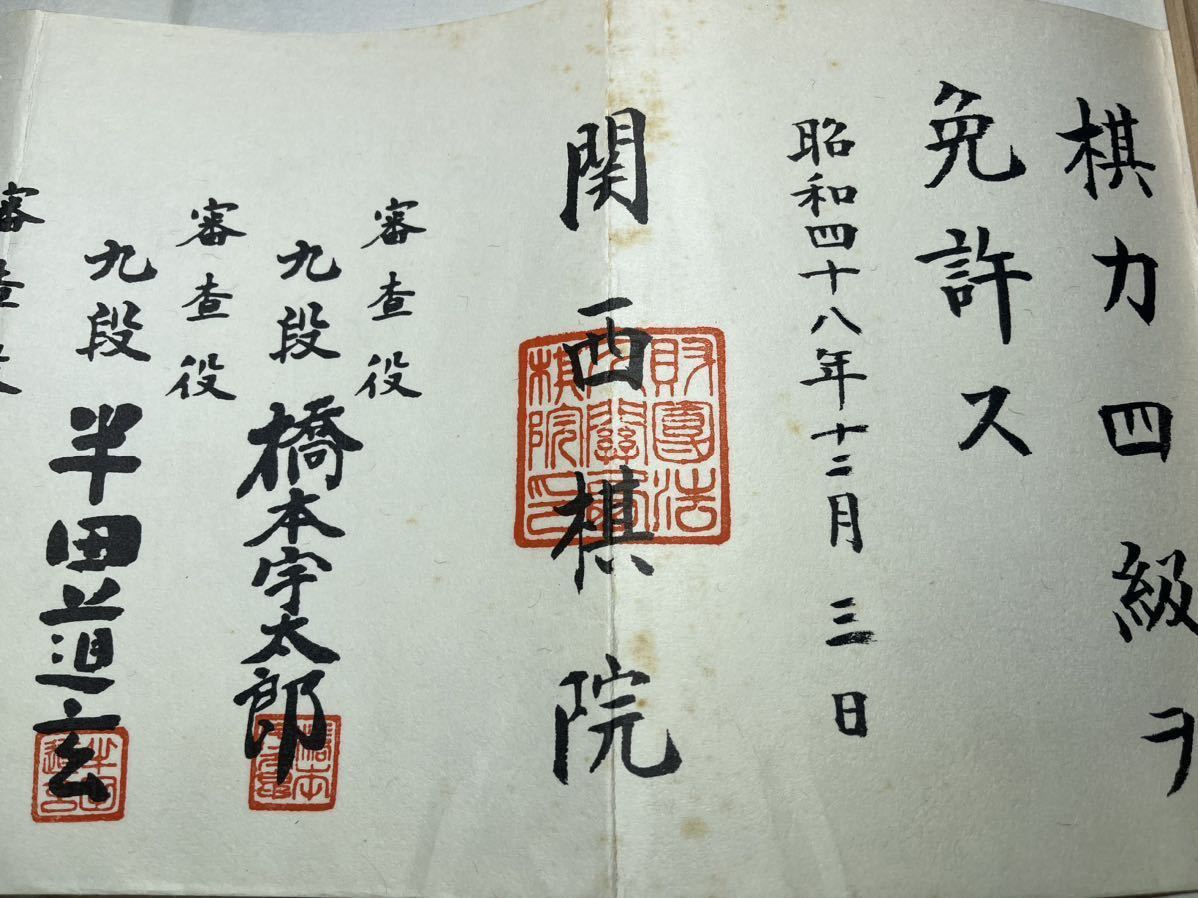 棋力四級ヲ
免許ス
昭和四十八年十二月三日
関西棋院
審査役
九段 橋本宇太郎
審査役
九段 半田道玄
審査役